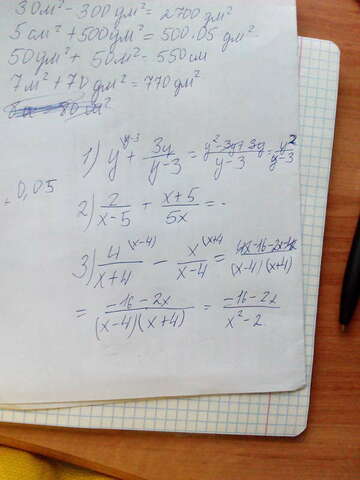 30м² - 300дм² = 2700 дм²
5 см² + 500дм² = 500.05 дм²
50дм² + 50м² - 550см
7м² + 70 дм² = 770дм²
1) y^(y-3) + 3y/(y-3) = (y²-3y+3y)/(y-3) = y²/(y-3)
0,05
2) 2/(x-5) + (x+5)/(5x) =
3) 4^(x-4)/(x+4) - x^(x+4)/(x-4) =
/((x-4)(x+4))
= (-16-2x)/((x-4)(x+4)) = (-16-2x)/(x²-2)